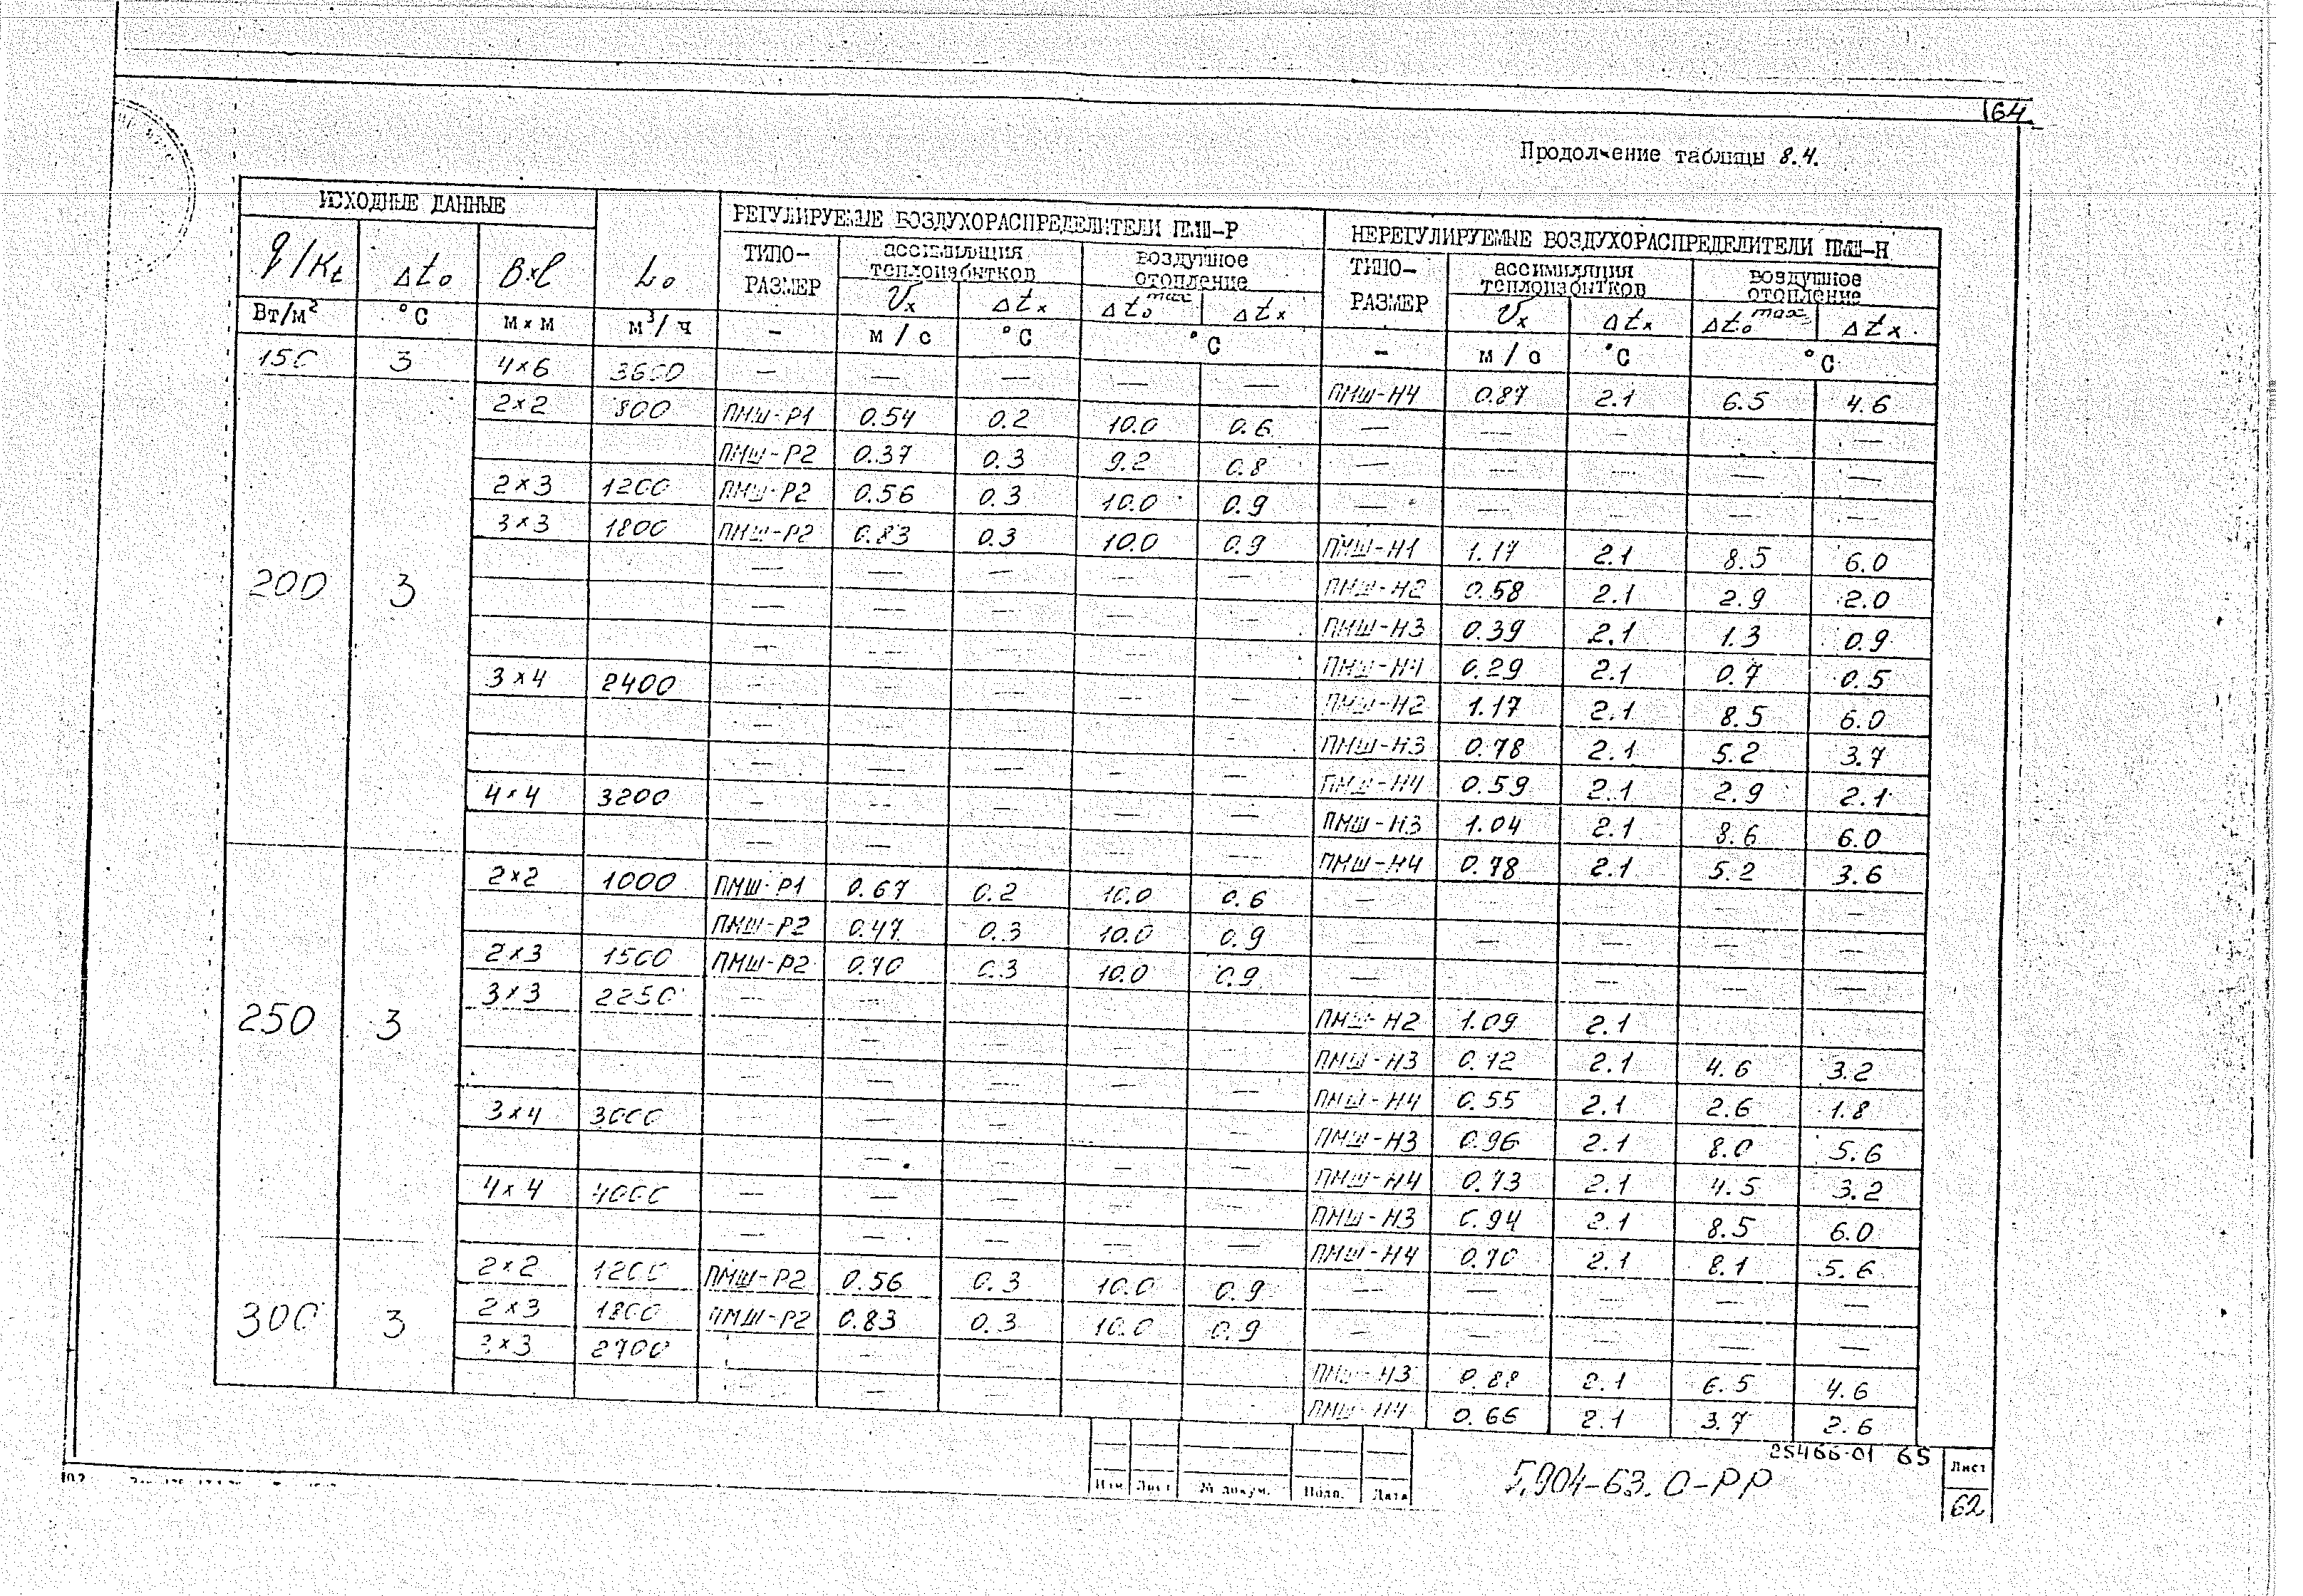 164
Продолжение таблицы 8.4.
ИСХОДНЫЕ ДАННЫЕ
РЕГУЛИРУЕМЫЕ ВОЗДУХОРАСПРЕДЕЛИТЕЛИ ПМШ-Р
НЕРЕГУЛИРУЕМЫЕ ВОЗДУХОРАСПРЕДЕЛИТЕЛИ ПМШ-Н
q/Kt Δto B×l Lo ТИПО- РАЗМЕР ассимиляция теплоизбытков воздушное отопление ТИПО- РАЗМЕР ассимиляция теплоизбытков воздушное отопление
Vx Δtx Δto max Δtx Vx Δtx Δto max Δtx
Вт/м² °С м×м м³/ч – м/с °С °С – м/с °С °С
150 3 4×6 3600 — — — — — ПМШ-Н4 0.87 2.1 6.5 4.6
2×2 800 ПМШ-Р1 0.54 0.2 10.0 0.6 — — — — —
ПМШ-Р2 0.37 0.3 9.2 0.8 — — — — —
2×3 1200 ПМШ-Р2 0.56 0.3 10.0 0.9 — — — — —
3×3 1800 ПМШ-Р2 0.83 0.3 10.0 0.9 ПМШ-Н1 1.17 2.1 8.5 6.0
200 3 — — — — — ПМШ-Н2 0.58 2.1 2.9 2.0
— — — — — ПМШ-Н3 0.39 2.1 1.3 0.9
— — — — — ПМШ-Н4 0.29 2.1 0.7 0.5
3×4 2400 — — — — — ПМШ-Н2 1.17 2.1 8.5 6.0
— — — — — ПМШ-Н3 0.78 2.1 5.2 3.7
— — — — — ПМШ-Н4 0.59 2.1 2.9 2.1
4×4 3200 — — — — — ПМШ-Н3 1.04 2.1 8.6 6.0
— — — — — ПМШ-Н4 0.78 2.1 5.2 3.6
2×2 1000 ПМШ-Р1 0.67 0.2 10.0 0.6 — — — — —
ПМШ-Р2 0.47 0.3 10.0 0.9 — — — — —
2×3 1500 ПМШ-Р2 0.70 0.3 10.0 0.9 — — — — —
250 3 3×3 2250 — — — — — ПМШ-Н2 1.09 2.1
— — — — — ПМШ-Н3 0.72 2.1 4.6 3.2
— — — — — ПМШ-Н4 0.55 2.1 2.6 1.8
3×4 3000 — — — — — ПМШ-Н3 0.96 2.1 8.0 5.6
— — — — ПМШ-Н4 0.73 2.1 4.5 3.2
4×4 4000 — — — — — ПМШ-Н3 0.94 2.1 8.5 6.0
— — — — — ПМШ-Н4 0.70 2.1 8.1 5.6
2×2 1200 ПМШ-Р2 0.56 0.3 10.0 0.9 — — — — —
300 3 2×3 1800 ПМШ-Р2 0.83 0.3 10.0 0.9 — — — — —
3×3 2700 — — — ПМШ-Н3 0.88 2.1 6.5 4.6
— — — ПМШ-Н4 0.66 2.1 3.7 2.6
25466-01 65
Изм Лист № докум. Подп. Дата
5.904-63.0-РР
Лист
62